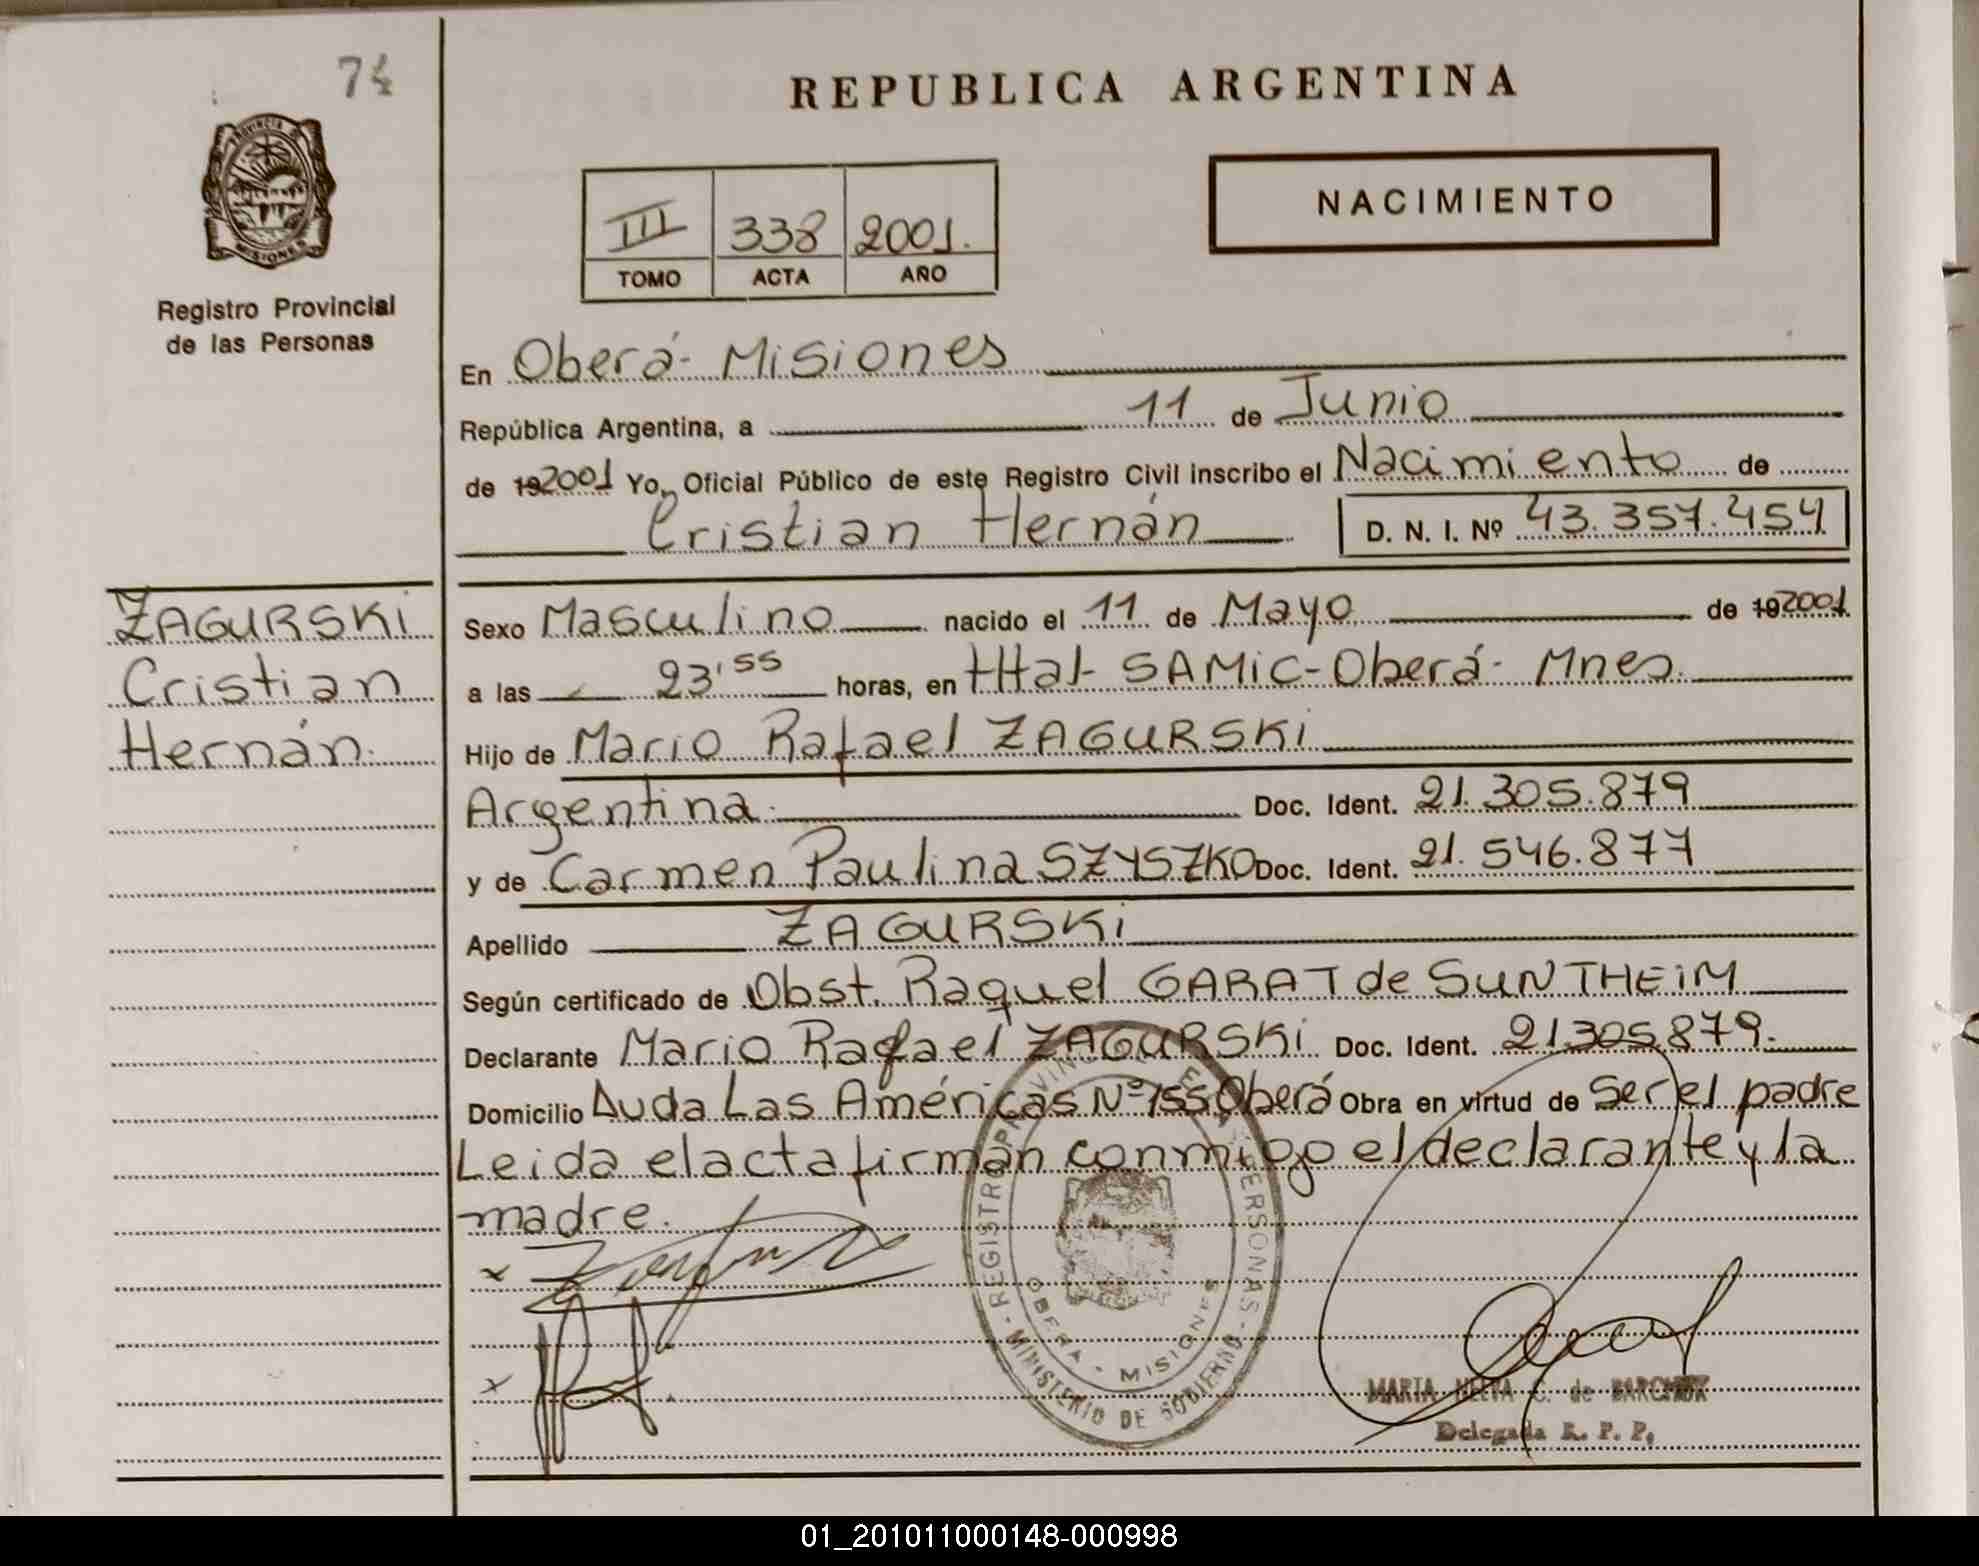 74
PROVINCIA DE
MISIONES
Registro Provincial
de las Personas
REPUBLICA ARGENTINA
III 338 2001.
TOMO ACTA AÑO
NACIMIENTO
En Oberá- Misiones
República Argentina, a 11 de Junio
de 192001 Yo, Oficial Público de este Registro Civil inscribo el Nacimiento de
Cristian Hernán D. N. I. Nº 43.357.454
ZAGURSKI
Cristian
Hernán.
Sexo Masculino nacido el 11 de Mayo de 192001
a las 23'55 horas, en Htal- SAMIC-Oberá- Mnes.
Hijo de Mario Rafael ZAGURSKI
Argentina. Doc. Ident. 21.305.879
y de Carmen Paulina SZYSZKO Doc. Ident. 21.546.877
Apellido ZAGURSKI
Según certificado de Obst. Raquel GARAT de SUNTHEIM
Declarante Mario Rafael ZAGURSKI Doc. Ident. 21305.879.
Domicilio Avda Las Américas Nº155 Oberá Obra en virtud de Ser el padre
Leida el acta firmán conmigo el declarante y la
madre.
REGISTRO PROVINCIAL DE LAS PERSONAS
OBERA - MISIONES
MINISTERIO DE GOBIERNO
MARIA C. de
Delegada R. P. P.
01_201011000148-000998